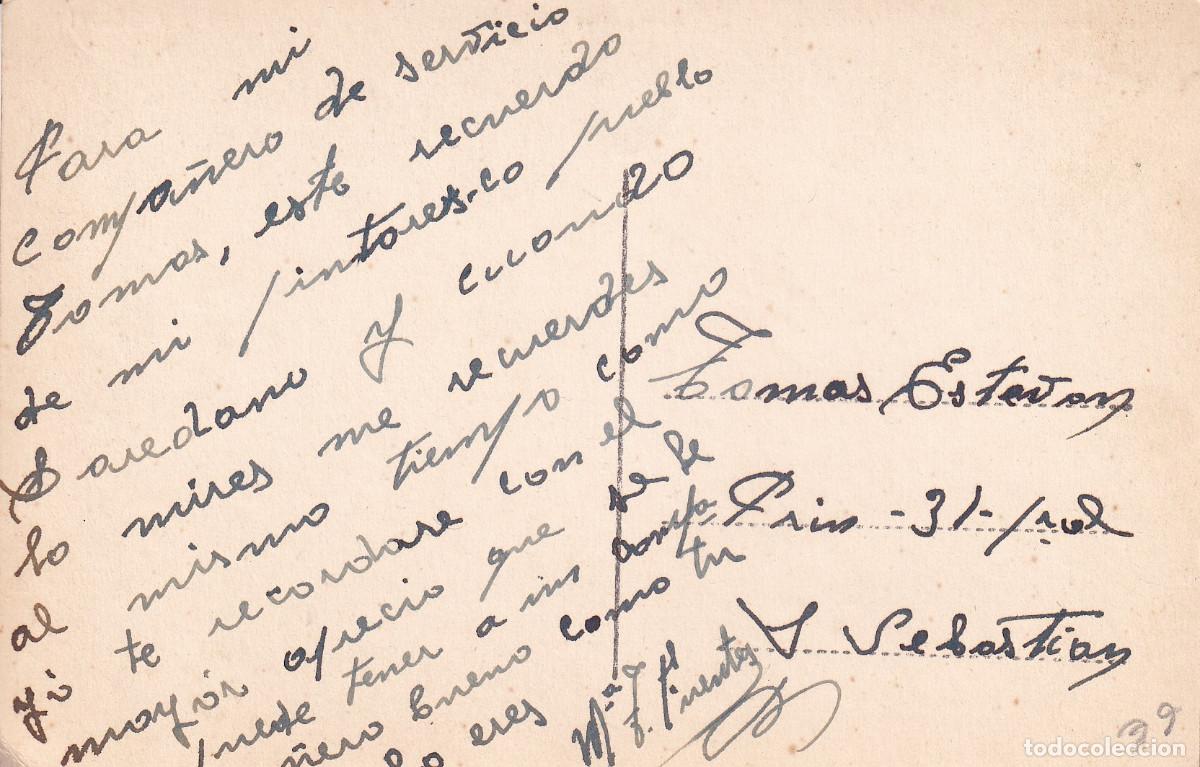 Para mi
compañero de servicio
Tomas, este recuerdo
de mi pintores-co pueblo
Saredano y cuando
lo mires me recuerdes
al mismo tiempo como
yo te recordare con el
mayor aprecio que se le
puede tener a un compa
ñero bueno como tu
lo eres
Mª F. Fuentes
Tomas Estevan
Prin - 31 - pral
S. Sebastian
39
todocoleccion